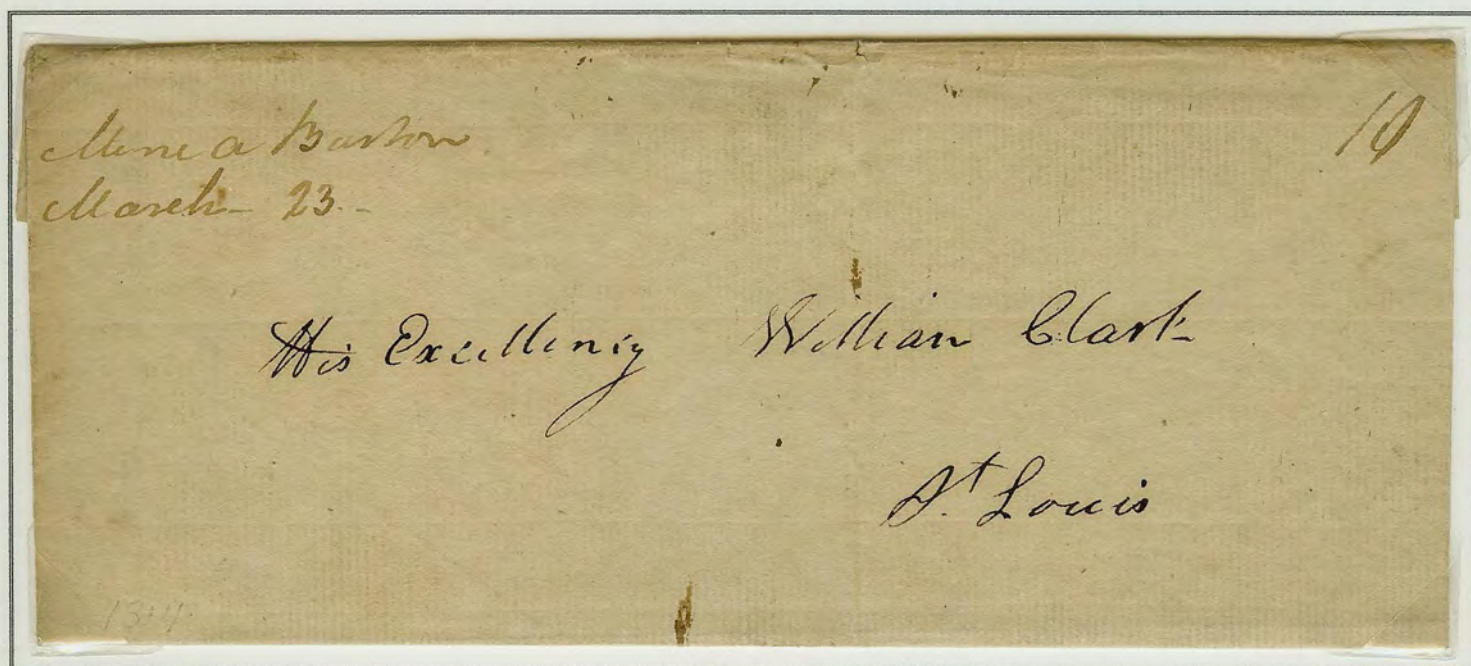 Mine a Burton
March 23.
10
His Excellency William Clark
St Louis